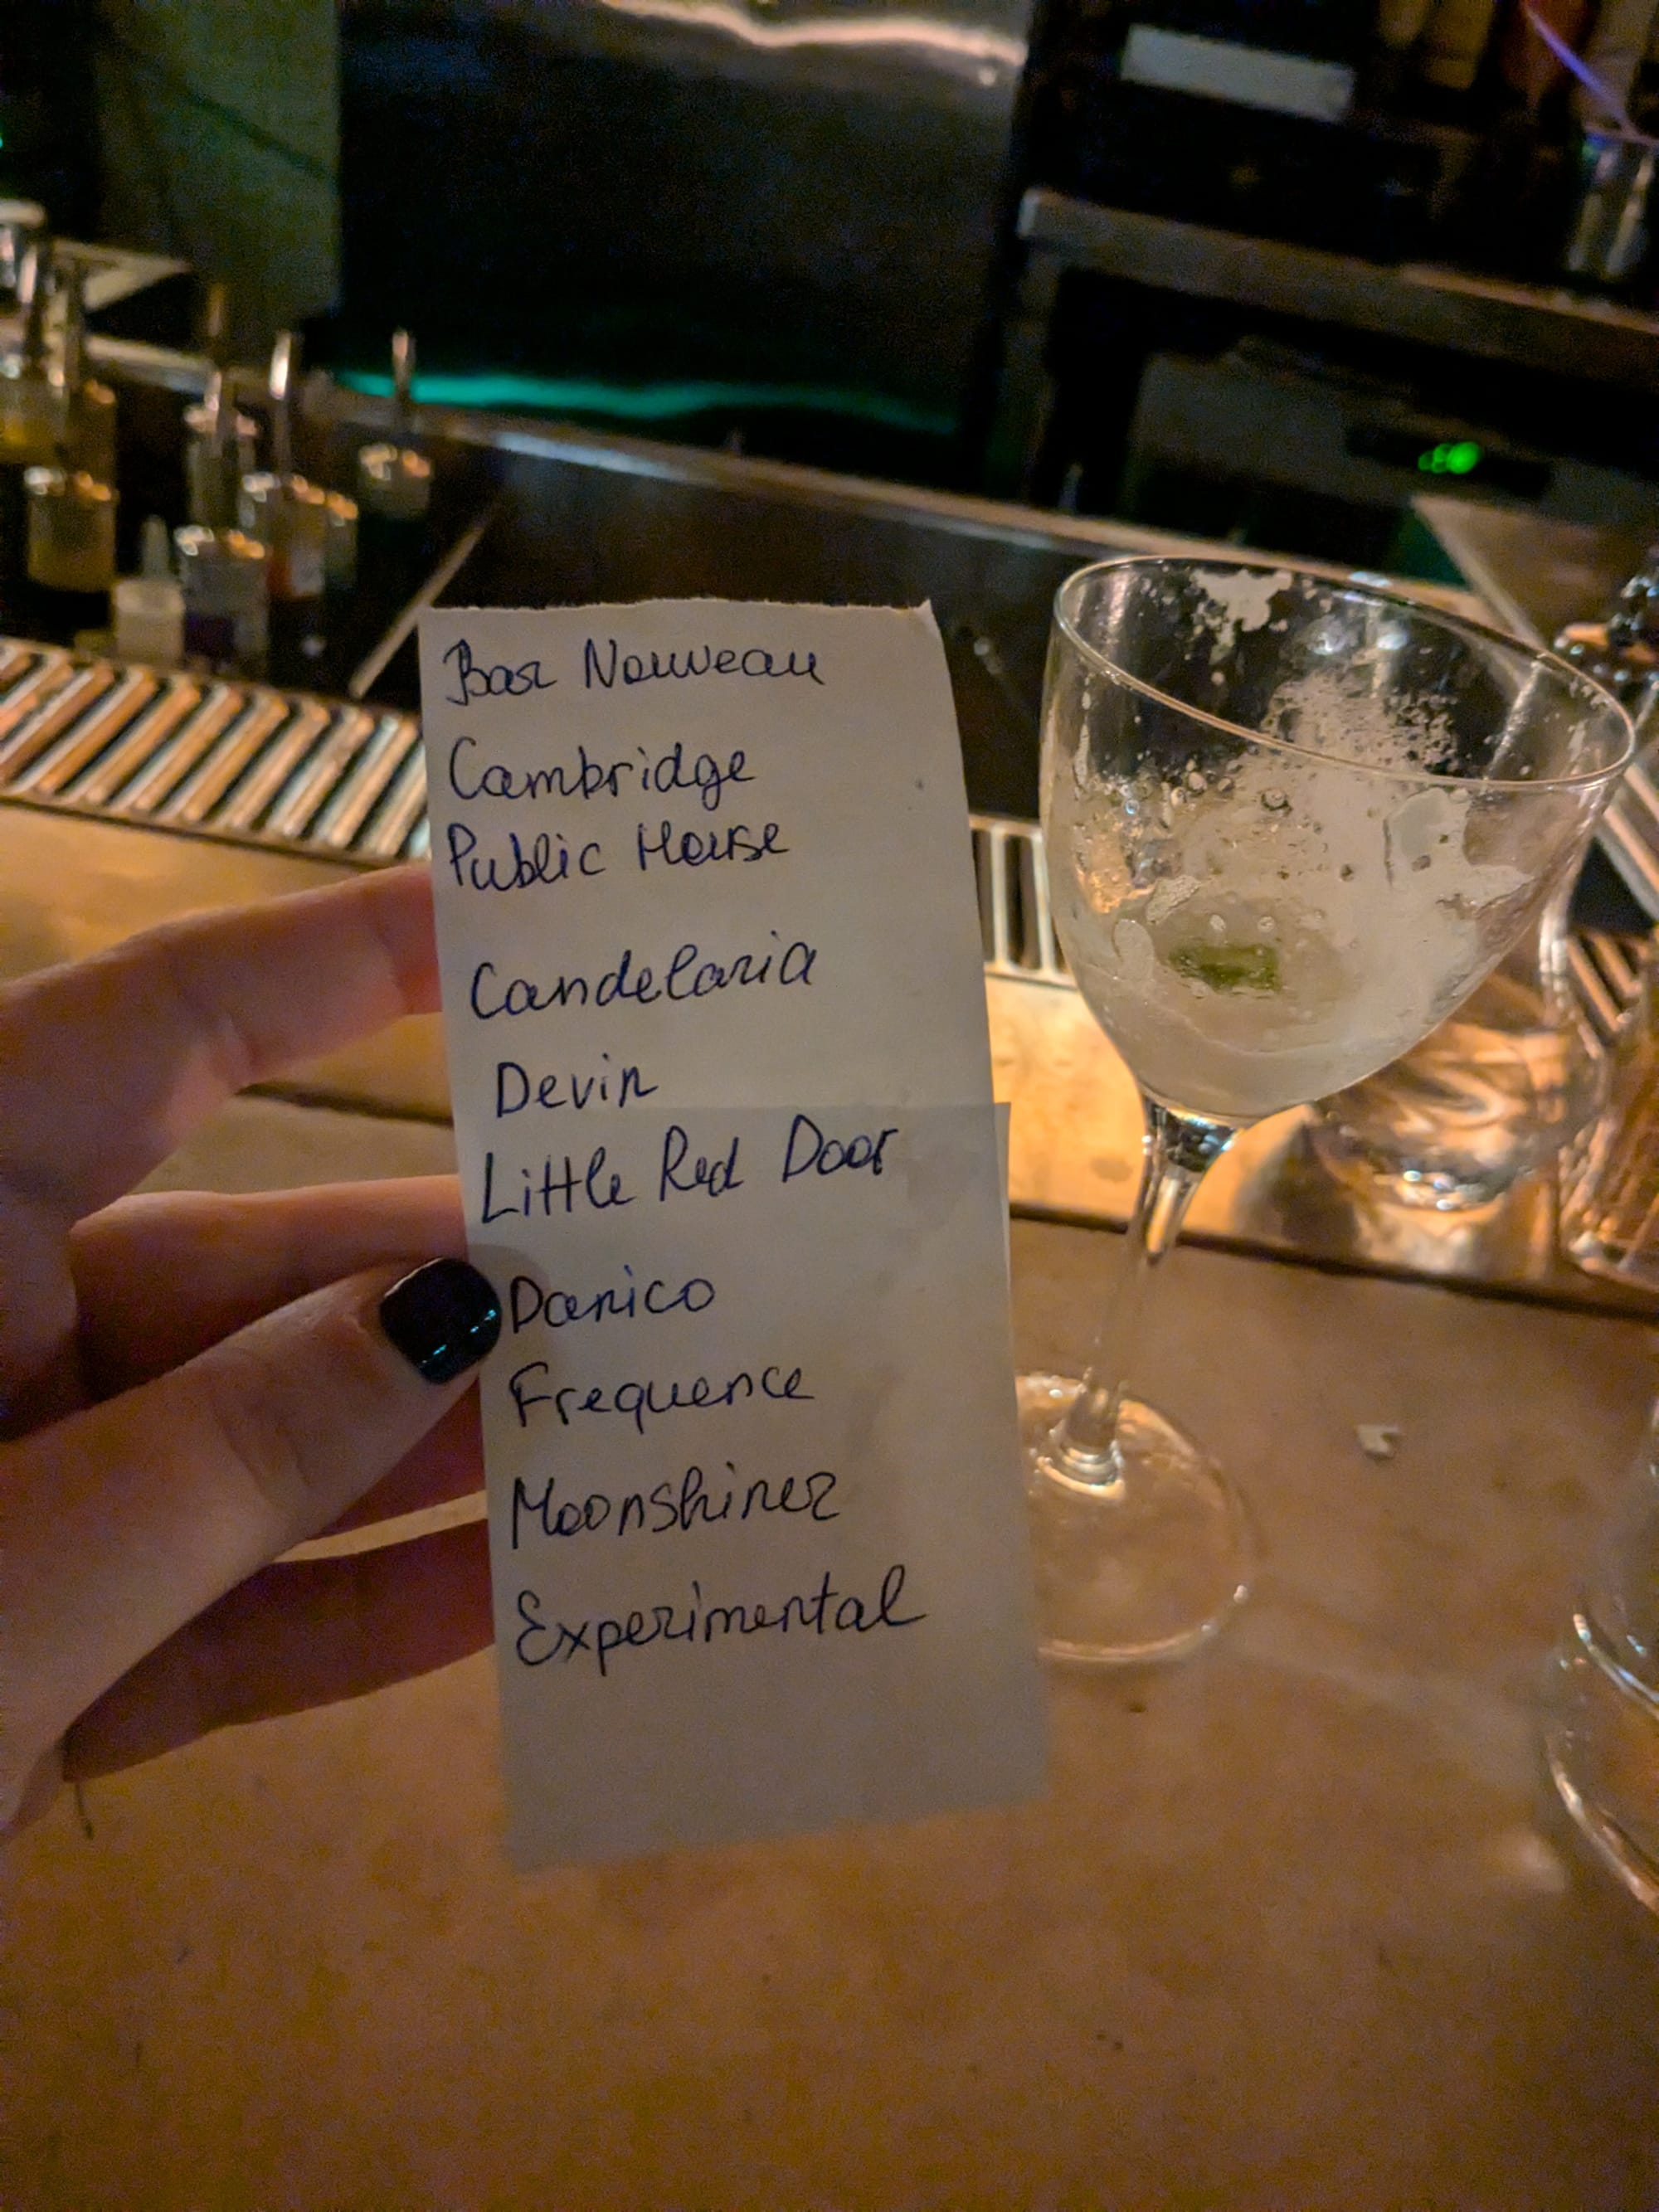 Bar Nouveau
Cambridge
Public House
Candelaria
Devin
Little Red Door
Danico
Frequence
Moonshiner
Experimental